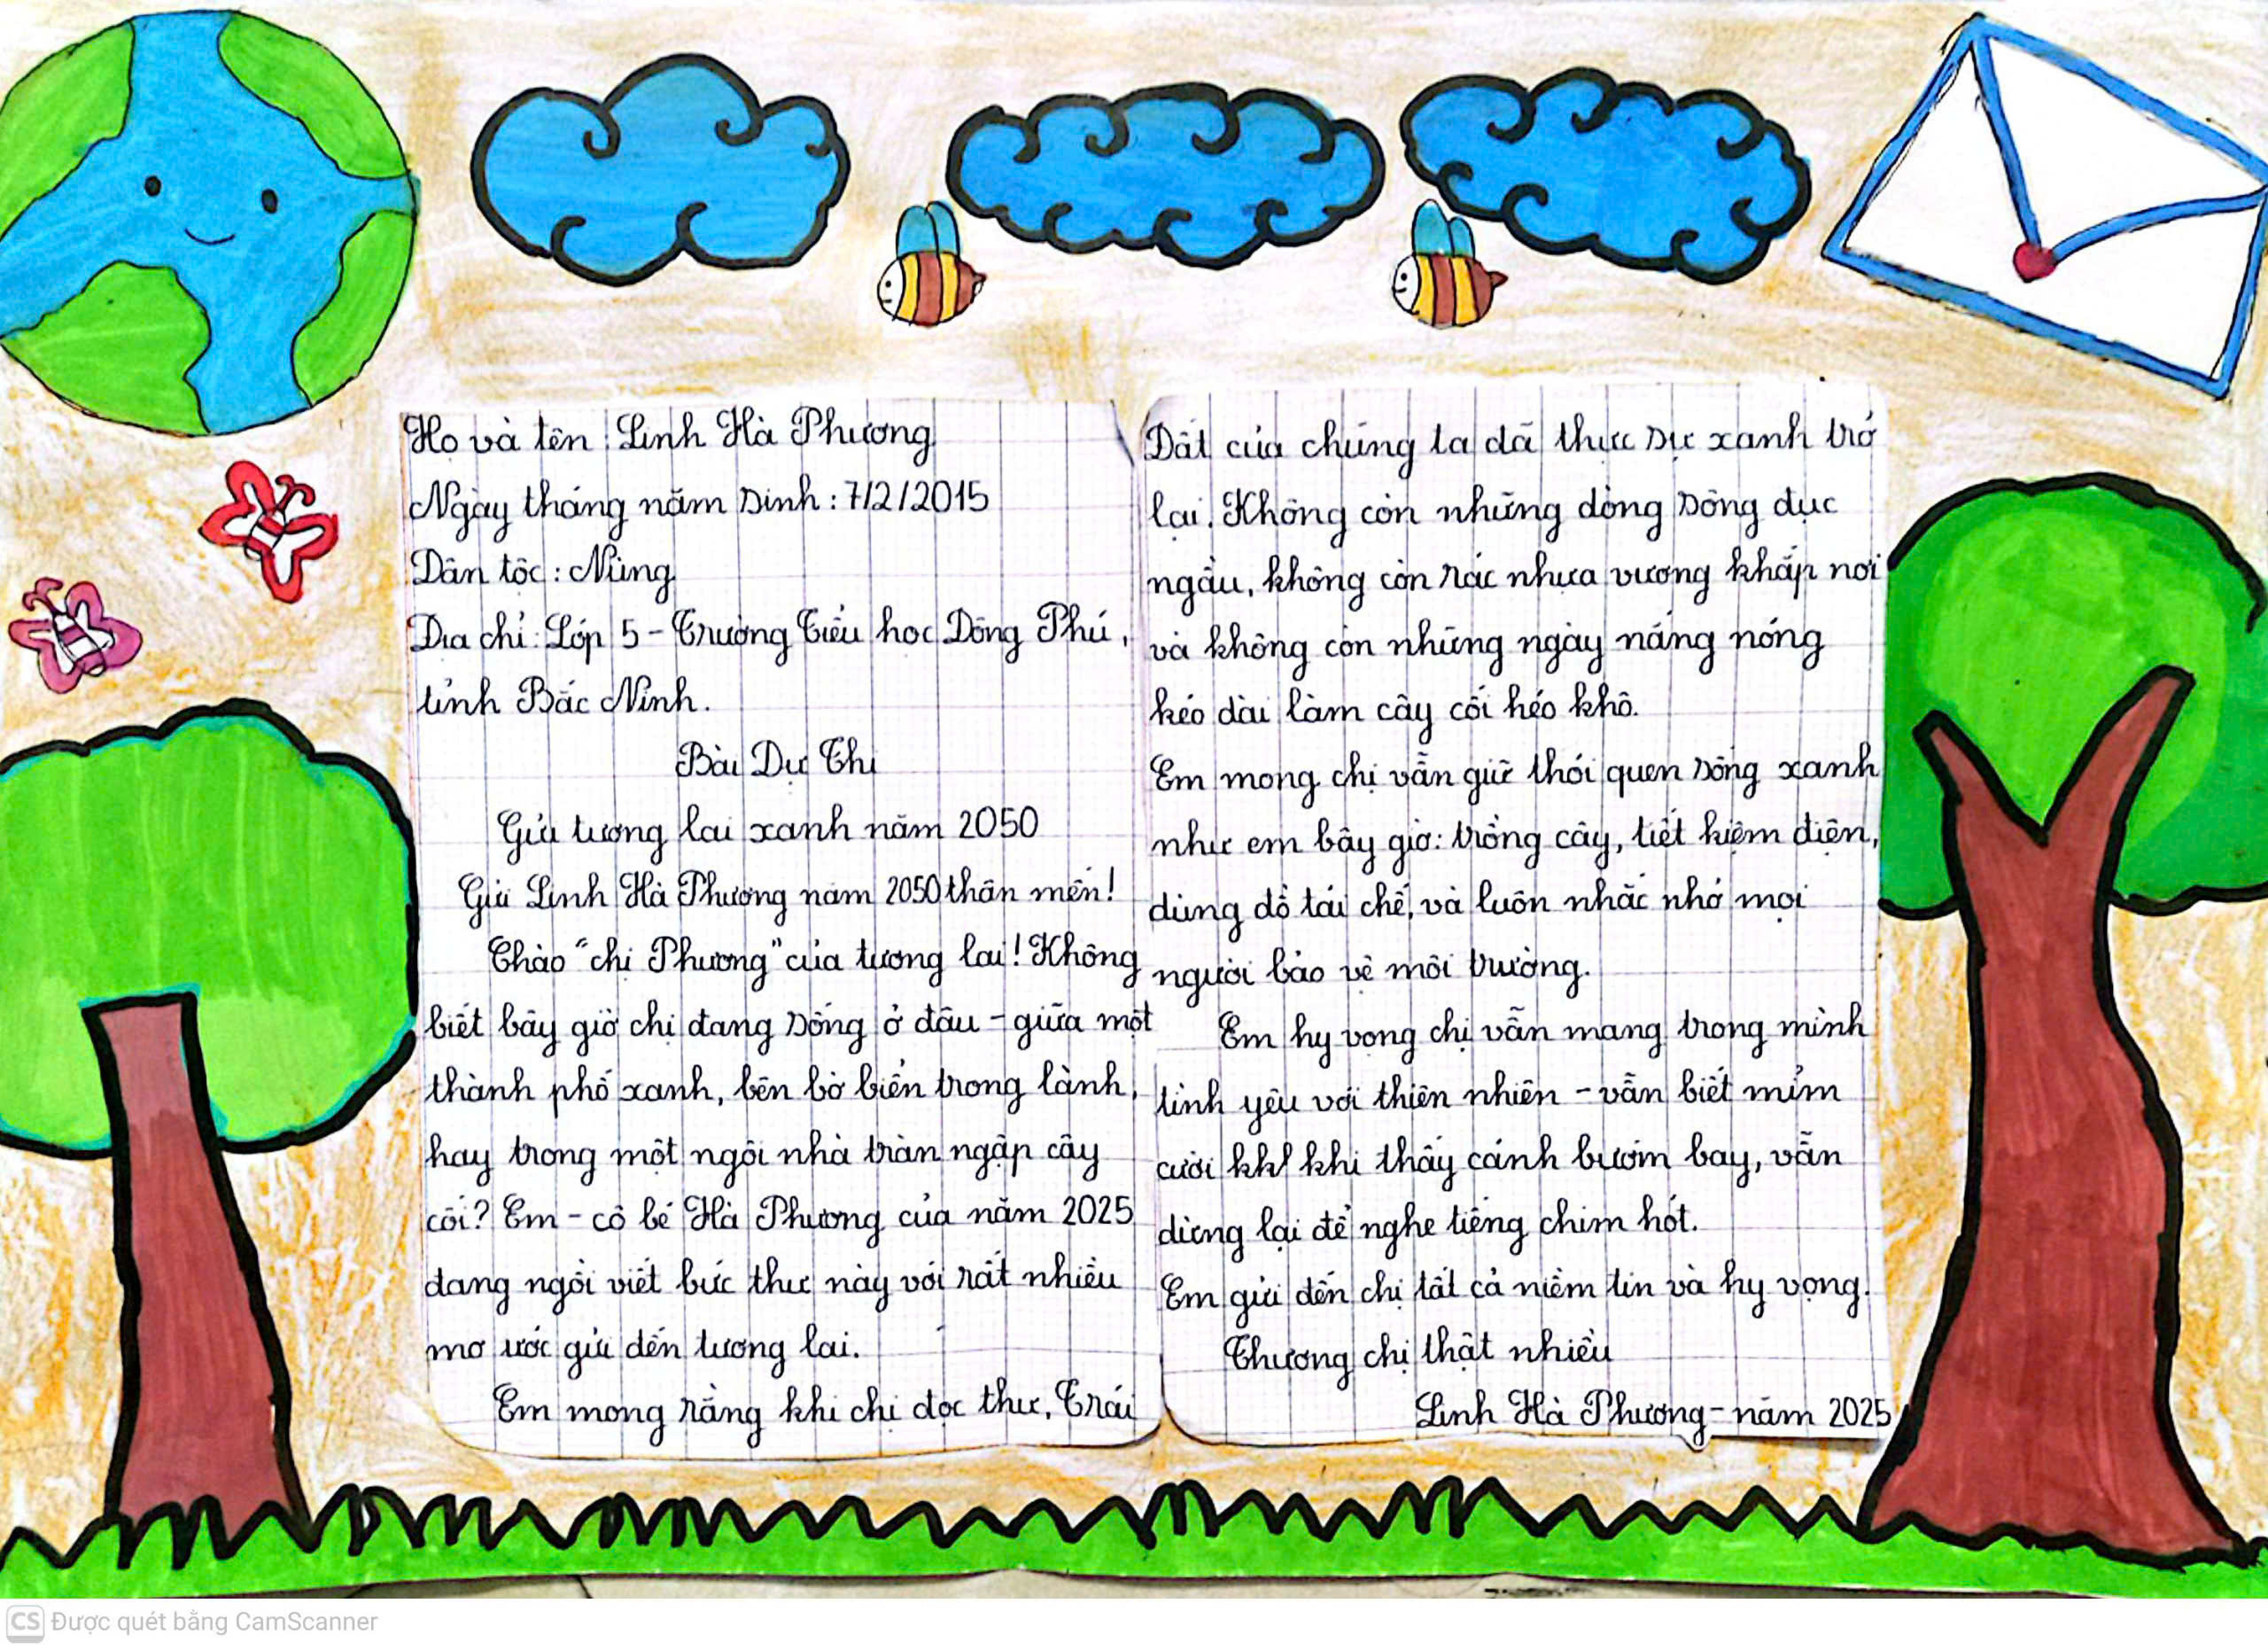 Họ và tên: Linh Hà Phương
Ngày tháng năm sinh: 7/2/2015
Dân tộc: Nùng
Địa chỉ: Lớp 5 - Trường Tiểu học Đông Phú,
tỉnh Bắc Ninh.
Bài Dự Thi
Gửi tương lai xanh năm 2050
Gửi Linh Hà Phương năm 2050 thân mến!
Chào "chị Phương" của tương lai! Không
biết bây giờ chị đang sống ở đâu - giữa một
thành phố xanh, bên bờ biển trong lành,
hay trong một ngôi nhà tràn ngập cây
cối? Em - cô bé Hà Phương của năm 2025
đang ngồi viết bức thư này với rất nhiều
mơ ước gửi đến tương lai.
Em mong rằng khi chị đọc thư, Trái
Đất của chúng ta đã thực sự xanh trở
lại. Không còn những dòng sông đục
ngầu, không còn rác nhựa vương khắp nơi
và không còn những ngày nắng nóng
kéo dài làm cây cối héo khô.
Em mong chị vẫn giữ thói quen sống xanh
như em bây giờ: trồng cây, tiết kiệm điện,
dùng đồ tái chế, và luôn nhắc nhở mọi
người bảo vệ môi trường.
Em hy vọng chị vẫn mang trong mình
tình yêu với thiên nhiên - vẫn biết mỉm
cười khi thấy cánh bướm bay, vẫn
dừng lại để nghe tiếng chim hót.
Em gửi đến chị tất cả niềm tin và hy vọng.
Thương chị thật nhiều
Linh Hà Phương - năm 2025
CS Được quét bằng CamScanner